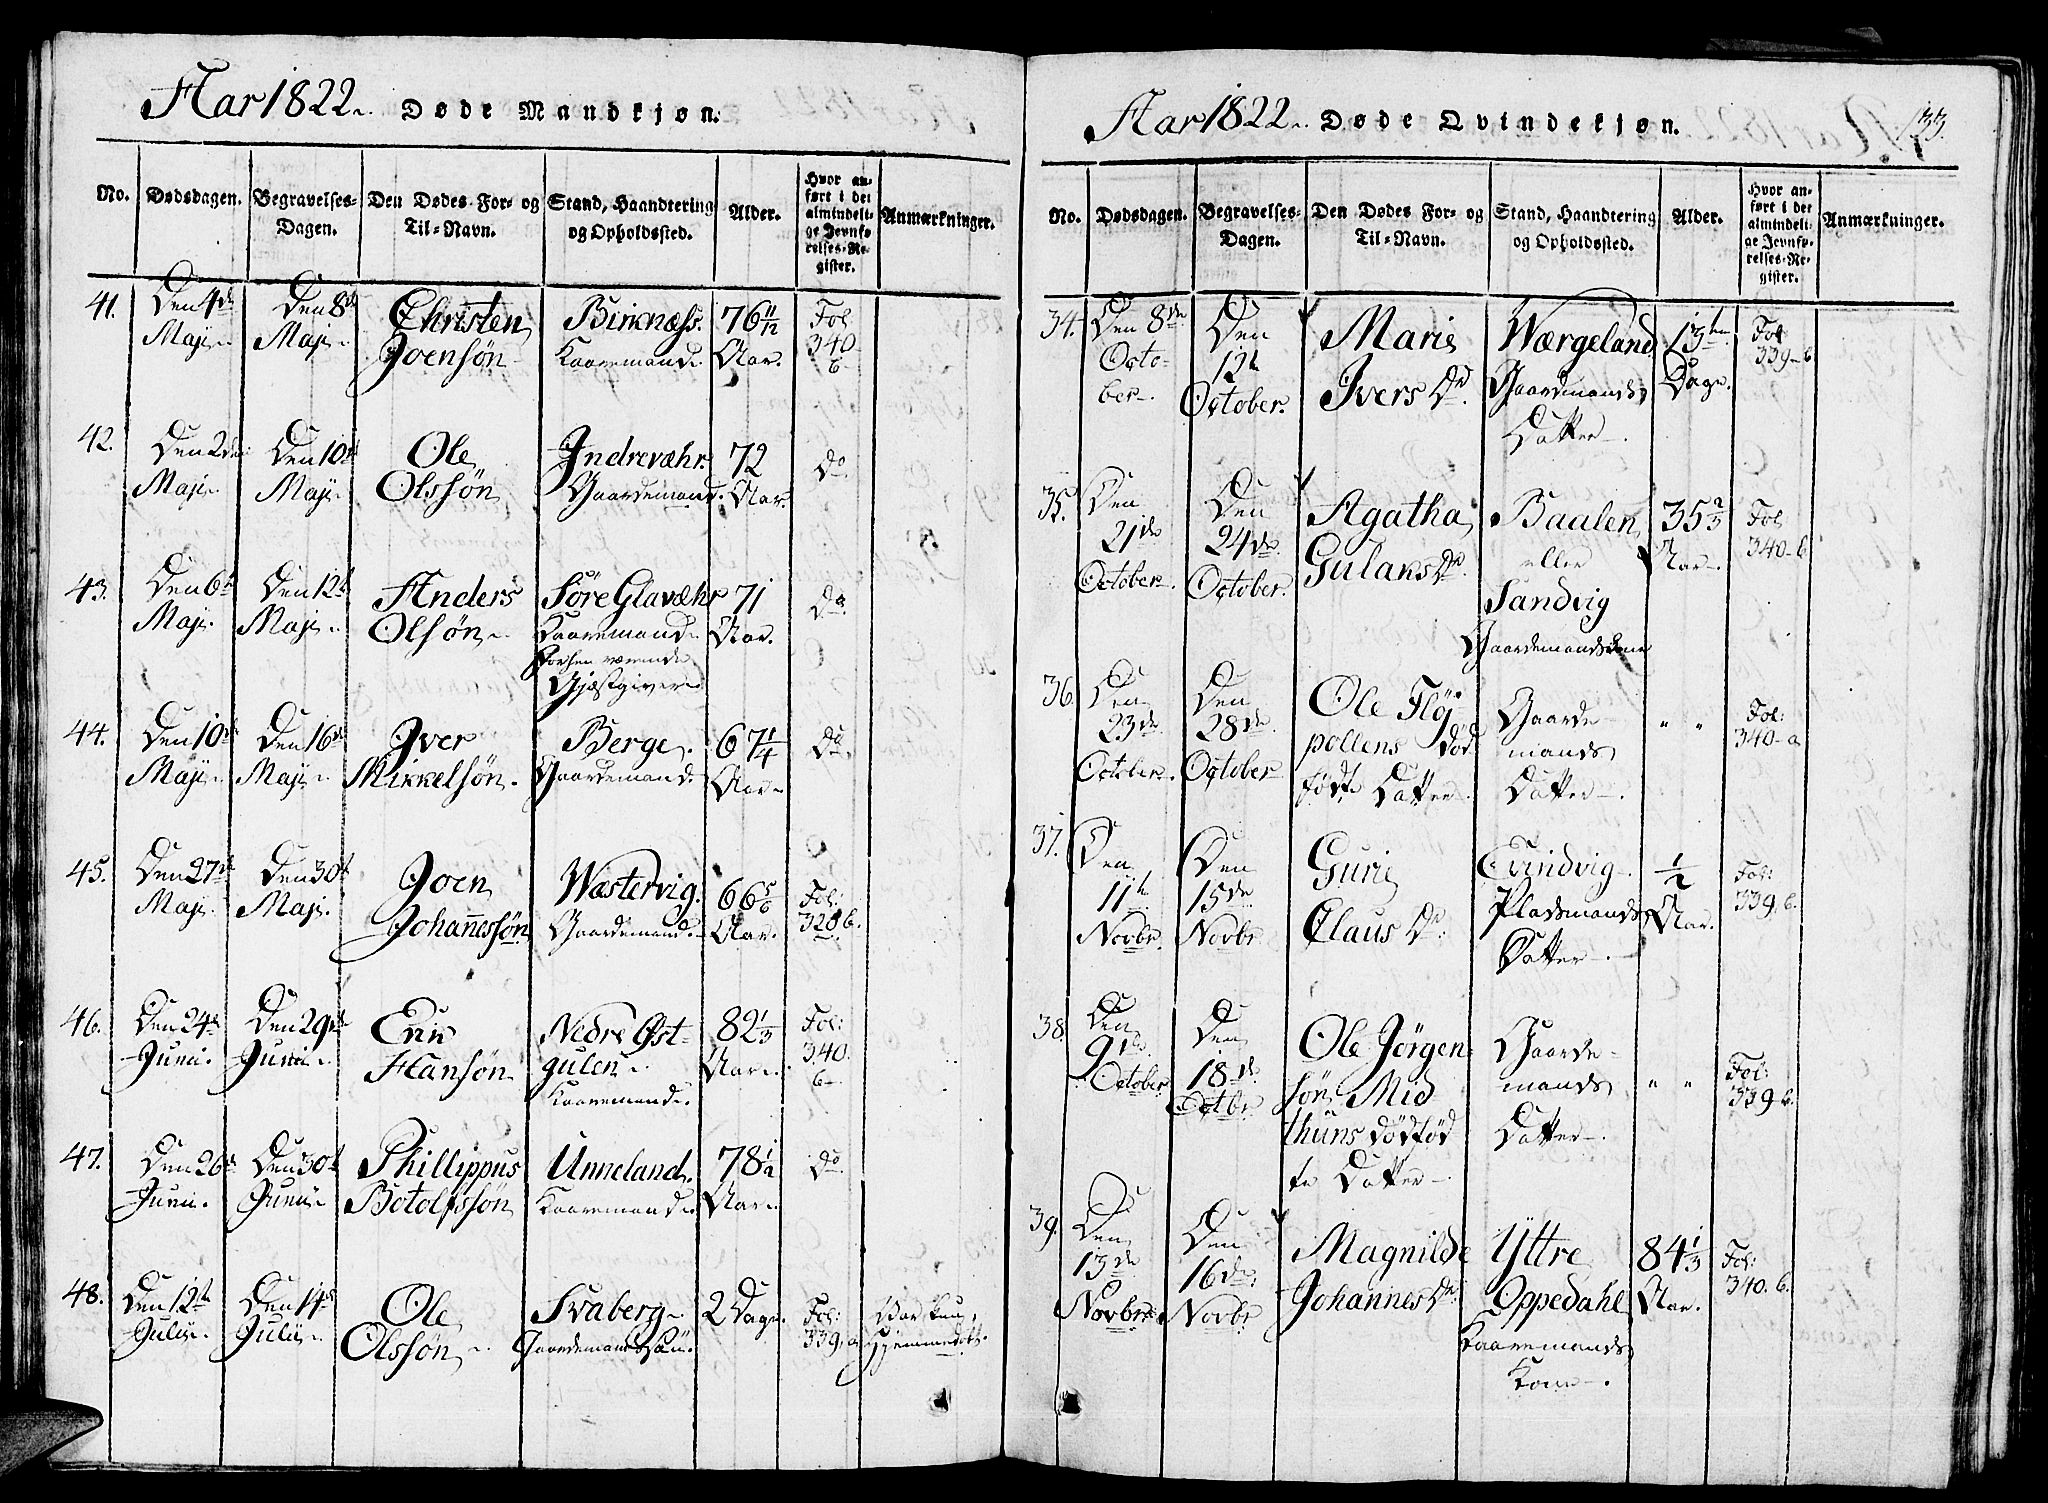 Aar 1822. Døde Mandkjøn.
No. Dødsdagen. Begravelses-Dagen. Den Dødes For- og Til-Navn. Stand, Haandtering og Opholdssted. Alder. Hvor anført i det almindelige Jevnførelses-Register. Anmærkninger.
41. Den 4de Den 8de Christen Birknæss. 76 11/12 Fol
Maji. Maji. Joensøn Kaaremand. Aar. 340
b.
42. Den 2den Den 10de Ole Indrevæhr. 72 Do
Maji. Maji. Olssøn Gaardemand. Aar.
43. Den 6te Den 12te Anders Søre Glavæhr 71 Do
Maji. Maji. Olsøn Kaaremand Aar.
forhen værende
Gjæstgiver
44. Den 10de Den 16de Iver Berge. 67 1/4 Do
Maji Maji Mikkelsøn. Gaardemand. Aar
45. Den 27de Den 30te Joen Wæstervig. 66 5/6 Fol:
Maji. Maji. Johannessøn Gaardemand. Aar. 328 b.
46. Den 24de Den 29de Erik Nedre Øst- 82 1/3 Fol:
Juni. Juni. Hansøn gulen Aar. 340.
Kaaremand. b
47. Den 26de Den 30te Phillippus Unneland. 78 1/2 Do
Juni. Juni Botolfssøn Kaaremand. Aar.
48. Den 12te Den 14de Ole Svaberg 2 Dage. Fol: Var kun
Julii. Julii. Olssøn Gaardemands Søn. 339, a Hjemmedøbt.
Aar 1822. Døde Qvindekjøn. 133.
No. Dødsdagen. Begravelses-Dagen. Den Dødes For- og Til-Navn. Stand, Haandtering og Opholdssted. Alder. Hvor anført i det almindelige Jevnførelses-Register. Anmærkninger.
34. Den 8de Den Marie Wærgeland 13ten Fol
Octo- 12te Ivers Dr. Gaardmands Dage. 339-b
ber. October. Datter
35. Den Den Agatha Baalen 35 2/3 Fol
21de 24de Gulaks Dr. eller Aar. 340-b
October. October. Sandvig
Gaardemandskone
36. Den Den Ole Fløi- Gaarde- " " Fol:
23de 28de pollens død mands 340-a
October. October fødte Datter Datter
37. Den Den Guri Evindvig 1/2 Fol:
11te 15de Claus Dr. Pladsmands Aar. 339, b.
Novbr. Novbr. Datter
38 Den Den Ole Jørgen Gaarde- " " Fol:
9de 18de søn Mid mands 339 b.
October Octbr. thuns dødfød Datter
te Datter
39. Den Den Magnilde Yttre 84 1/3 Fol:
13de 16de Johannes Dr. Oppedahl Aar. 340. b.
Novbr. Novbr. Kaaremands
Kone